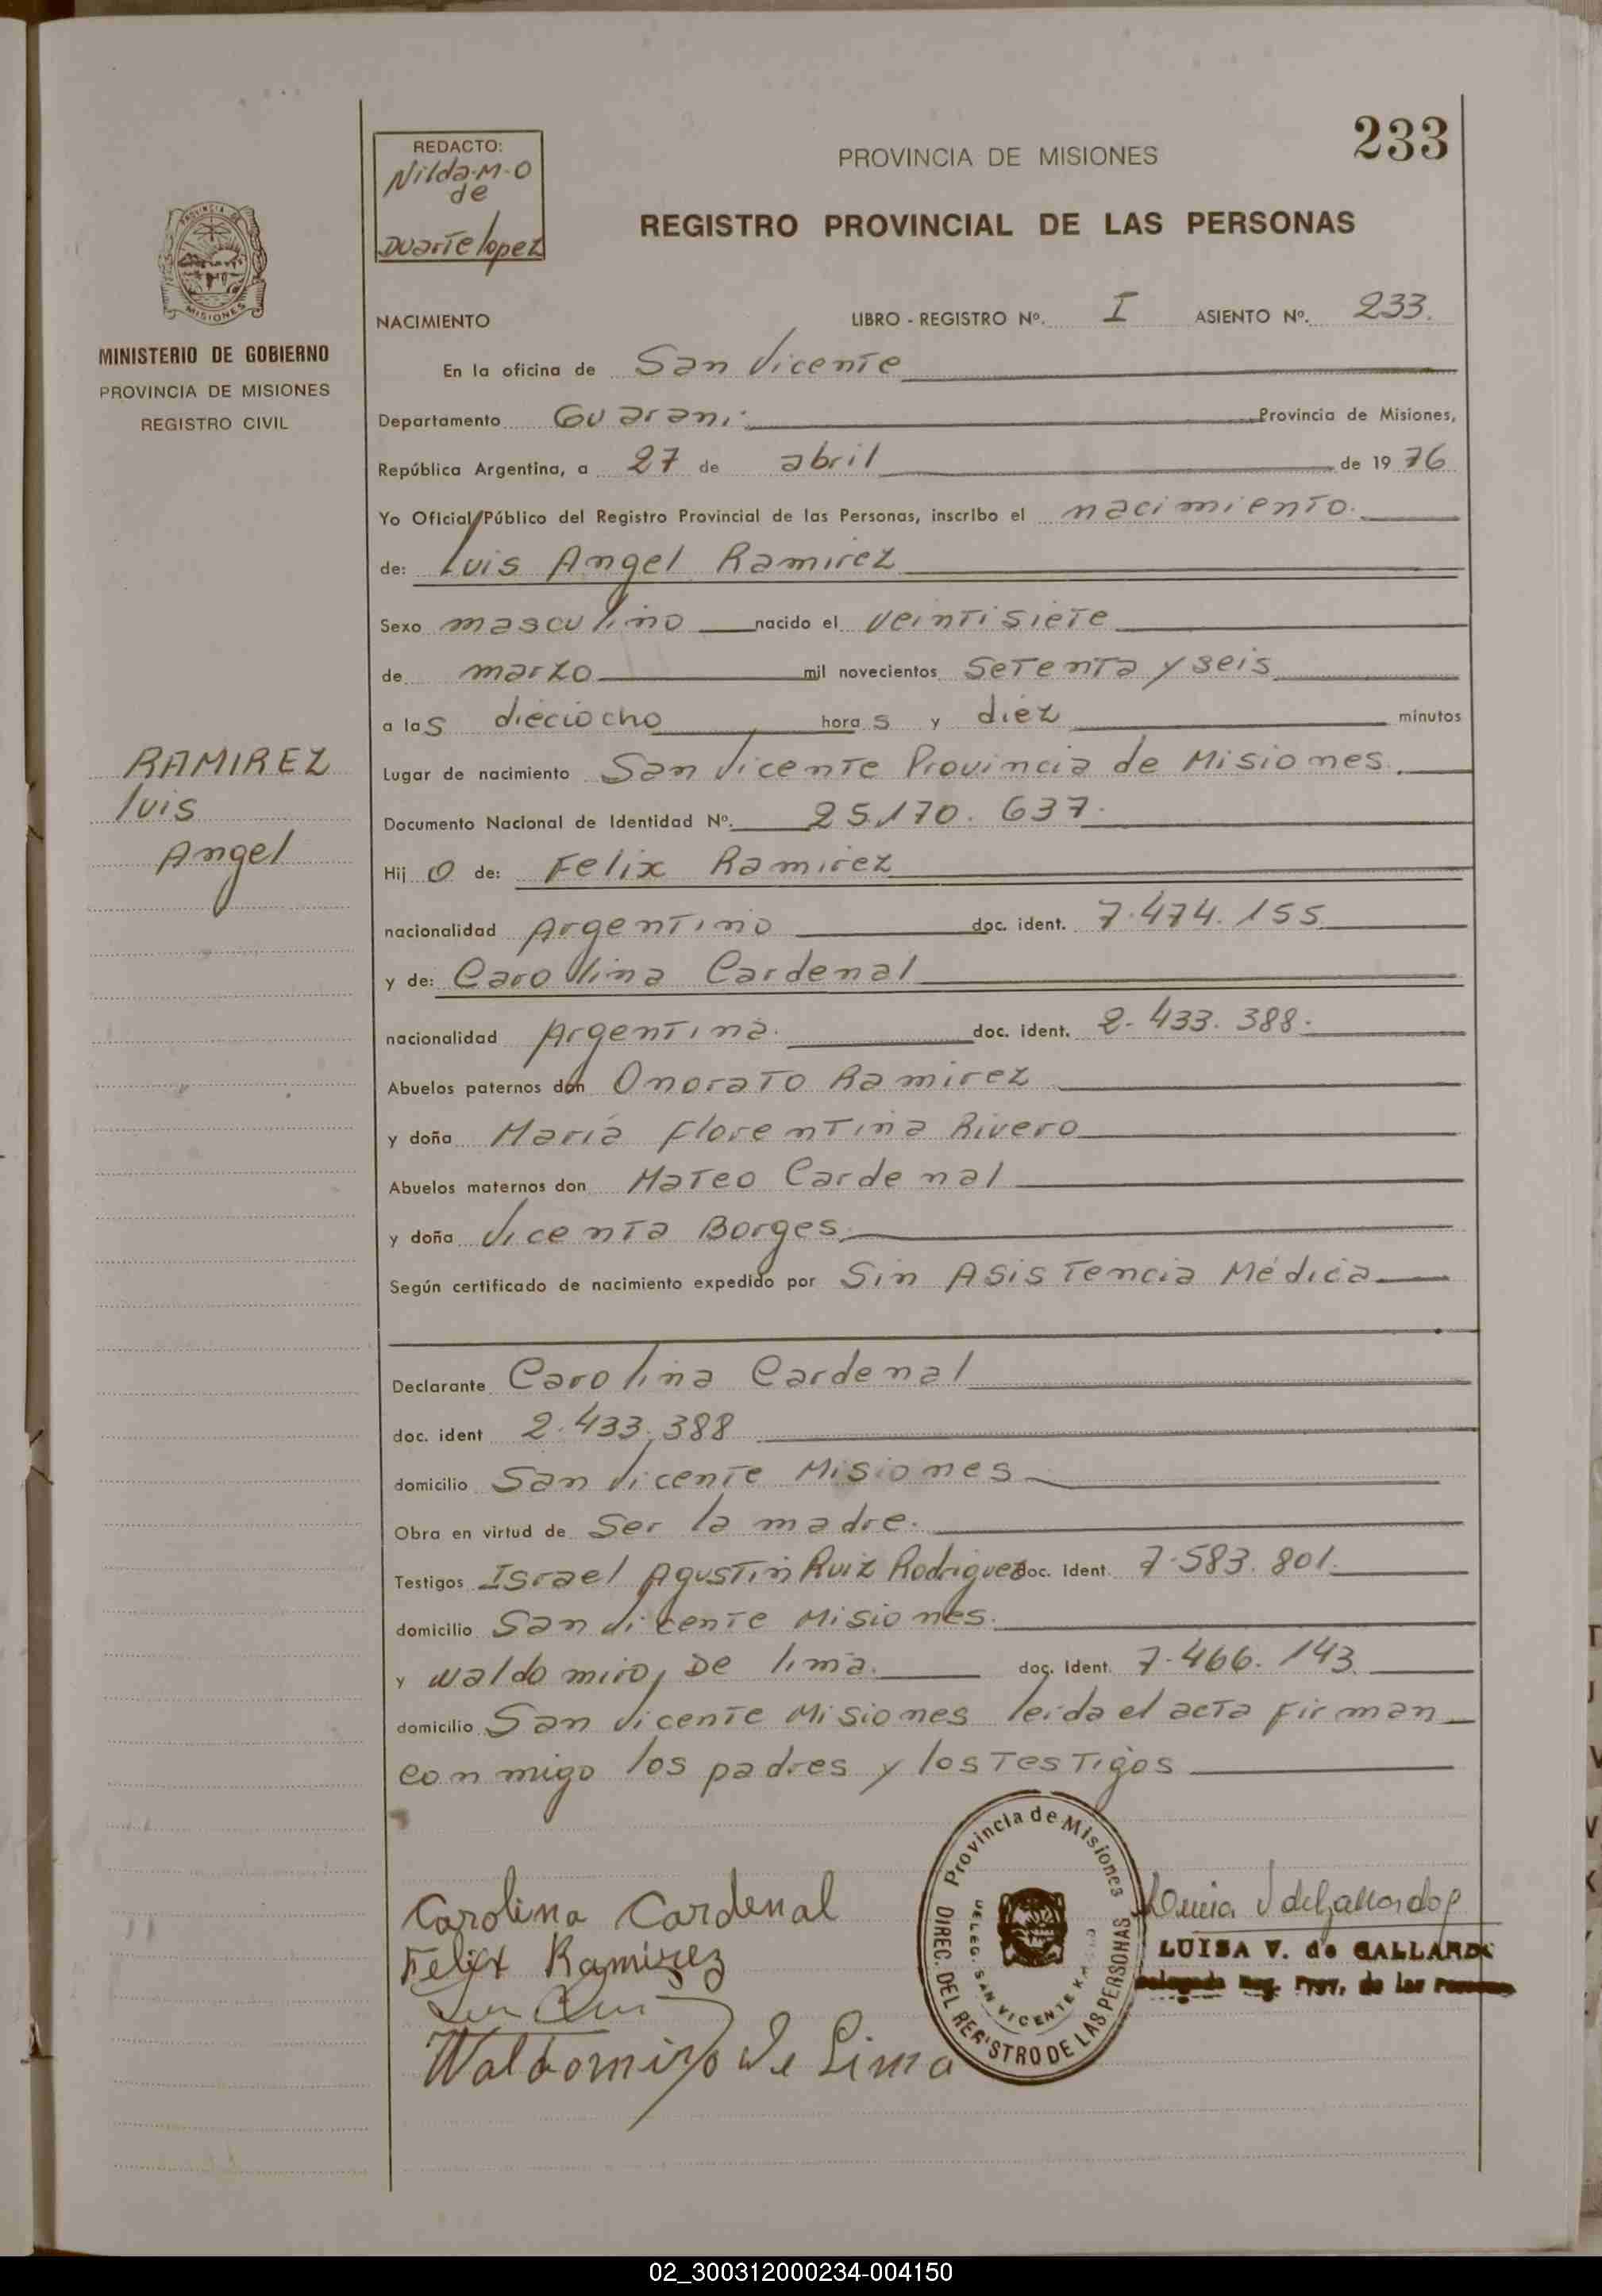 233
REDACTO:
Nilda·M·O
de
Duarte lopez
PROVINCIA DE MISIONES
REGISTRO PROVINCIAL DE LAS PERSONAS
PROVINCIA DE
MISIONES
MINISTERIO DE GOBIERNO
PROVINCIA DE MISIONES
REGISTRO CIVIL
NACIMIENTO LIBRO - REGISTRO Nº. I ASIENTO Nº. 233.
En la oficina de San Vicente
Departamento Guarani Provincia de Misiones,
República Argentina, a 27 de abril de 19 76
Yo Oficial Público del Registro Provincial de las Personas, inscribo el nacimiento.
de: Luis Angel Ramirez
Sexo masculino nacido el veintisiete
de marzo mil novecientos setenta y seis
a las dieciocho horas y diez minutos
RAMIREZ
Luis
Angel
Lugar de nacimiento San Vicente Provincia de Misiones.
Documento Nacional de Identidad Nº. 25.170.637.
Hijo de: Felix Ramirez
nacionalidad Argentino doc. ident. 7.474.155
y de: Carolina Cardenal
nacionalidad Argentina. doc. ident. 2.433.388.
Abuelos paternos don Onorato Ramirez
y doña María Florentina Rivero
Abuelos maternos don Mateo Cardenal
y doña Vicenta Borges
Según certificado de nacimiento expedido por Sin Asistencia Médica
Declarante Carolina Cardenal
doc. ident 2.433.388
domicilio San Vicente Misiones
Obra en virtud de Ser la madre.
Testigos Israel Agustin Ruiz Rodriguez doc. Ident. 7.583.801.
domicilio San Vicente Misiones.
y Waldomiro, De lima. doc. Ident. 7.466.143.
domicilio San Vicente Misiones leida el acta firman
conmigo los padres y los testigos
Carolina Cardenal
Felix Ramirez
Waldomiro de Lima
Provincia de Misiones
DIREC. DEL REGISTRO DE LAS PERSONAS
DELEG. SAN VICENTE
LUISA V. de GALLARDO
Delegada Reg. Prov. de las Personas
02_300312000234-004150